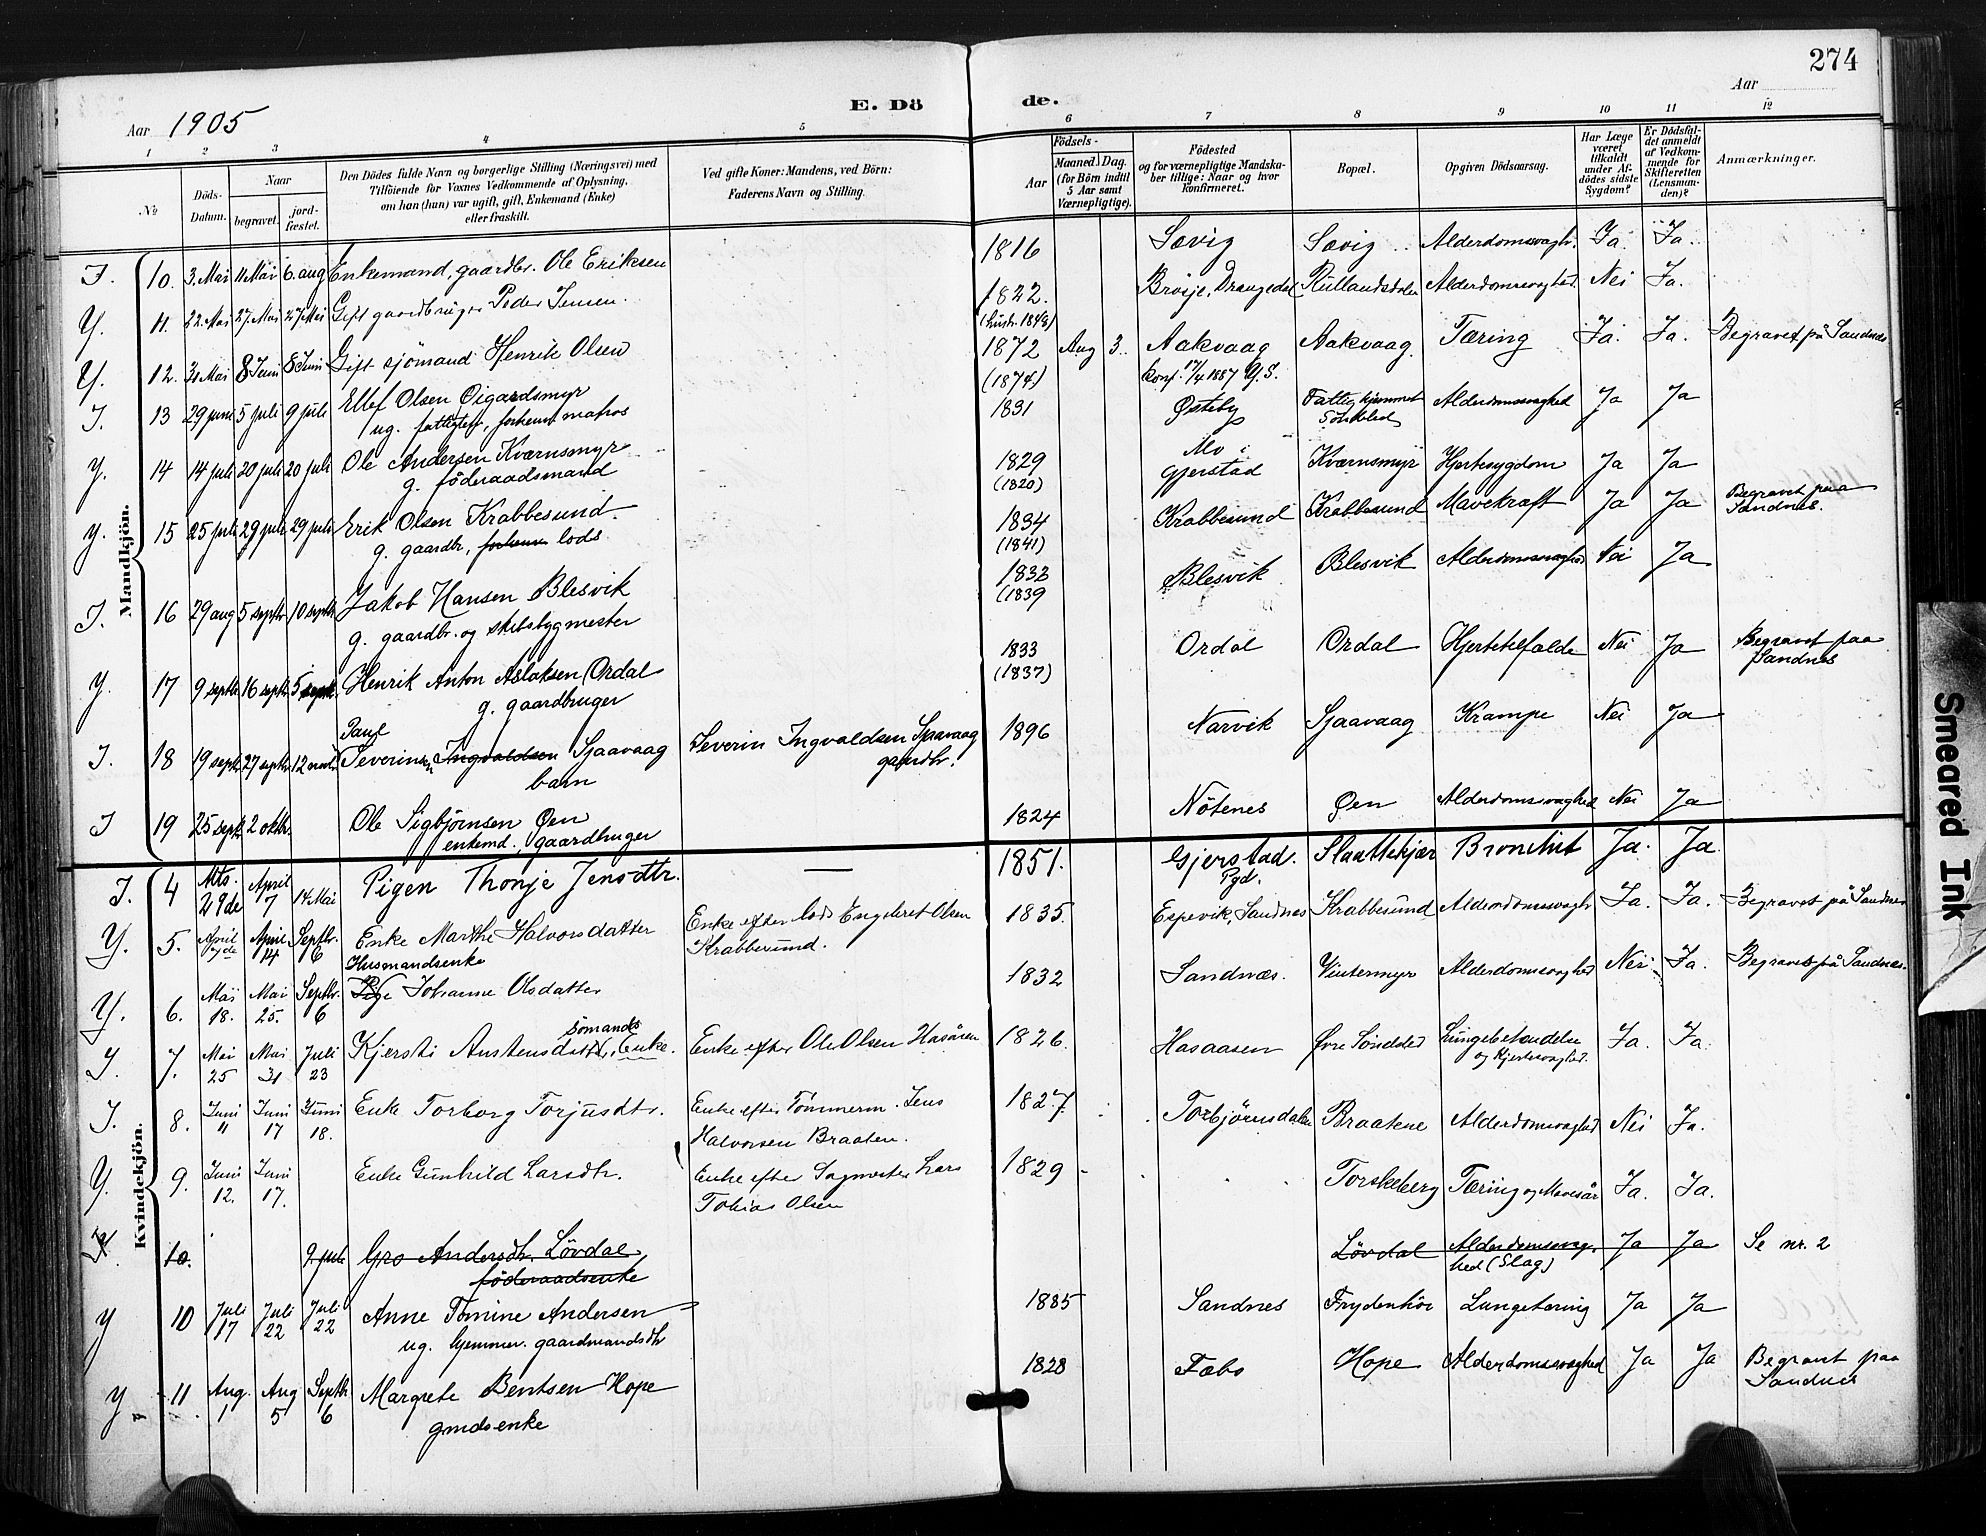 274
Aar 1905
E. Dö de.
Aar
1 2 3 4 5 6 7 8 9 10 11 12
№
Döds-Datum.
Naar
begravet.
jordfæstet.
Den Dödes fulde Navn og borgerlige Stilling (Næringsvei) med
Tilföiende for Voxnes Vedkommende af Oplysning,
om han (hun) var ugift, gift, Enkemand (Enke)
eller fraskilt.
Ved gifte Koner: Mandens, ved Börn:
Faderens Navn og Stilling.
Födsels-
Aar
Maaned. Dag.
(for Börn indtil
5 Aar samt
Værnepligtige).
Födested
og for værnepligtige Mandskaber tillige: Naar og hvor
konfirmeret.
Bopæl.
Opgiven Dödsaarsag.
Har Læge
været
tilkaldt
under Afdödes sidste
Sygdom?
Er Dödsfaldet anmeldt
af Vedkommende for
Skifteretten
(Lensmanden)?
Anmærkninger.
Mandkjön.
I. 10. 3. Mai 11. Mai 6. aug Enkemand, gaardbr. Ole Eriksen 1816 Sævig Sævig Alderdomssvagh. Ja. Ja.
Y. 11. 22. Mai 27. Mai 27. Mai Gift gaardbruger Peder Jensen. 1822. Broije, Drangedal Rullandsdalen Alderdomssvaghed. Nei Ja.
Y. 12. 31. Mai 8 Juni 8 Juni Gift sjömand Henrik Olsen 1872 Aug 3. Aakvaag Aakvaag Tæring Ja. Ja. Begravet på Sandnes
(1874) Konf. 17/4 1887 Y.S.
I. 13 29 juni 5 juli 9 juli Ellef Olsen Öigardsmyr 1831 Østeby Fattighjemmet Söndeled Alderdomssvaghed Ja Ja
ug. fattiglem, forhenv. matros
Y. 14 14 juli 20 juli 20 juli Ole Andersen Kværnsmyr 1829 (1820) Mo i Gjerstad Kværnsmyr Hjertesygdom Ja Ja
g. föderaadsmand
Y. 15 25 juli 29 juli 29 juli Erik Olsen Krabbesund. 1834 (1841) Krabbesund Krabbesund Mavekræft Ja Ja Begravet paa Sandnes.
g. gaardbr., forhenv. lods.
I. 16 29 aug 5 septbr 10 septbr Jakob Hansen Blesvik 1832 (1839 Blesvik Blesvik Alderdomssvaghed Nei Ja
g. gaardbr. og skibsbygmester
Y 17 9 septbr 16 septbr 5 septbr. Henrik Anton Aslaksen Ordal 1833 (1837) Ordal Ordal Hjertetilfælde Nei Ja Begravet paa Sandnes
g. gaardbruger
Paul
I. 18 19 septbr 27 septbr 12 novbr Severinsen Ingvaldsen Sjaavaag Severin Ingvaldsen Sjaavaag gaardbr. 1896 Narvik Sjaavaag Krampe Nei Ja
barn
I 19 25 septbr 2 oktbr. Ole Sigbjörnsen Øen 1824 Nötenes Øen Alderdomssvaghed Nei Ja
enkemd. gaardbruger
Kvindekjön.
I. 4 Mts. 29de April 7 14 Mai Pigen Thonje Jensdtr. — 1851. Gjerstad. Pgd. Slaattekjær Bronchit Ja. Ja.
Y. 5. April 7de April 14 Septbr. 6 Enke Marthe Halvorsdatter Enke efter lods Engebret Olsen Krabbesund. 1835. Espevik, Sandnes Krabbesund Alderdomssvagh. Ja. Ja. Begravet på Sandnes
Husmandsenke
Y. 6. Mai 18. Mai 25. Septbr. 6 Pige Johanne Olsdatter 1832 Sandnæs. Vintermyr Alderdomssvaghed Nei Ja. Begravet på Sandnæs.
sömands
I. 7. Mai 25 Mai 31 Juli 23 Kjersti Austensdatter, Enke. Enke efter Ole Olsen Hasåsen 1826. Hasaasen Øvre Söndeled Lungebetændelse og Hjertesvaghed. Ja. Ja.
I. 8. Juni 11 Juni 17 Juni 18. Enke Torborg Torjusdtr. Enke efter Tömmerm. Jens Halvorsen Braaten. 1827. Torbjörnsdalen Braatene Alderdomssvaghed Nei Ja.
Y. 9. Juni 12. Juni 17. Enke Gunhild Larsdtr. Enke efter Sagmester Lars Tobias Olsen 1829 Torskeberg Tæring og Mavesår Ja. Ja.
10. 9 juli Gro Andersdtr. Lövdal Lövdal Alderdomssvaghed (Slag) Ja Ja Se nr. 2
föderaadsenke
Y 10 Juli 17 Juli 22 Juli 22 Anne Tomine Andersen 1885 Sandnes Frydenhöi Lungetæring Ja Ja
ug. hjemmev. gaardmandsdtr
Y 11 Aug. 1 Aug 5 Septbr 6 Margrete Bentsen Hope 1828 Fæbo Hope Alderdomssvaghed Ja Ja Begravet paa Sandnes
gmdsenke
Smeared Ink